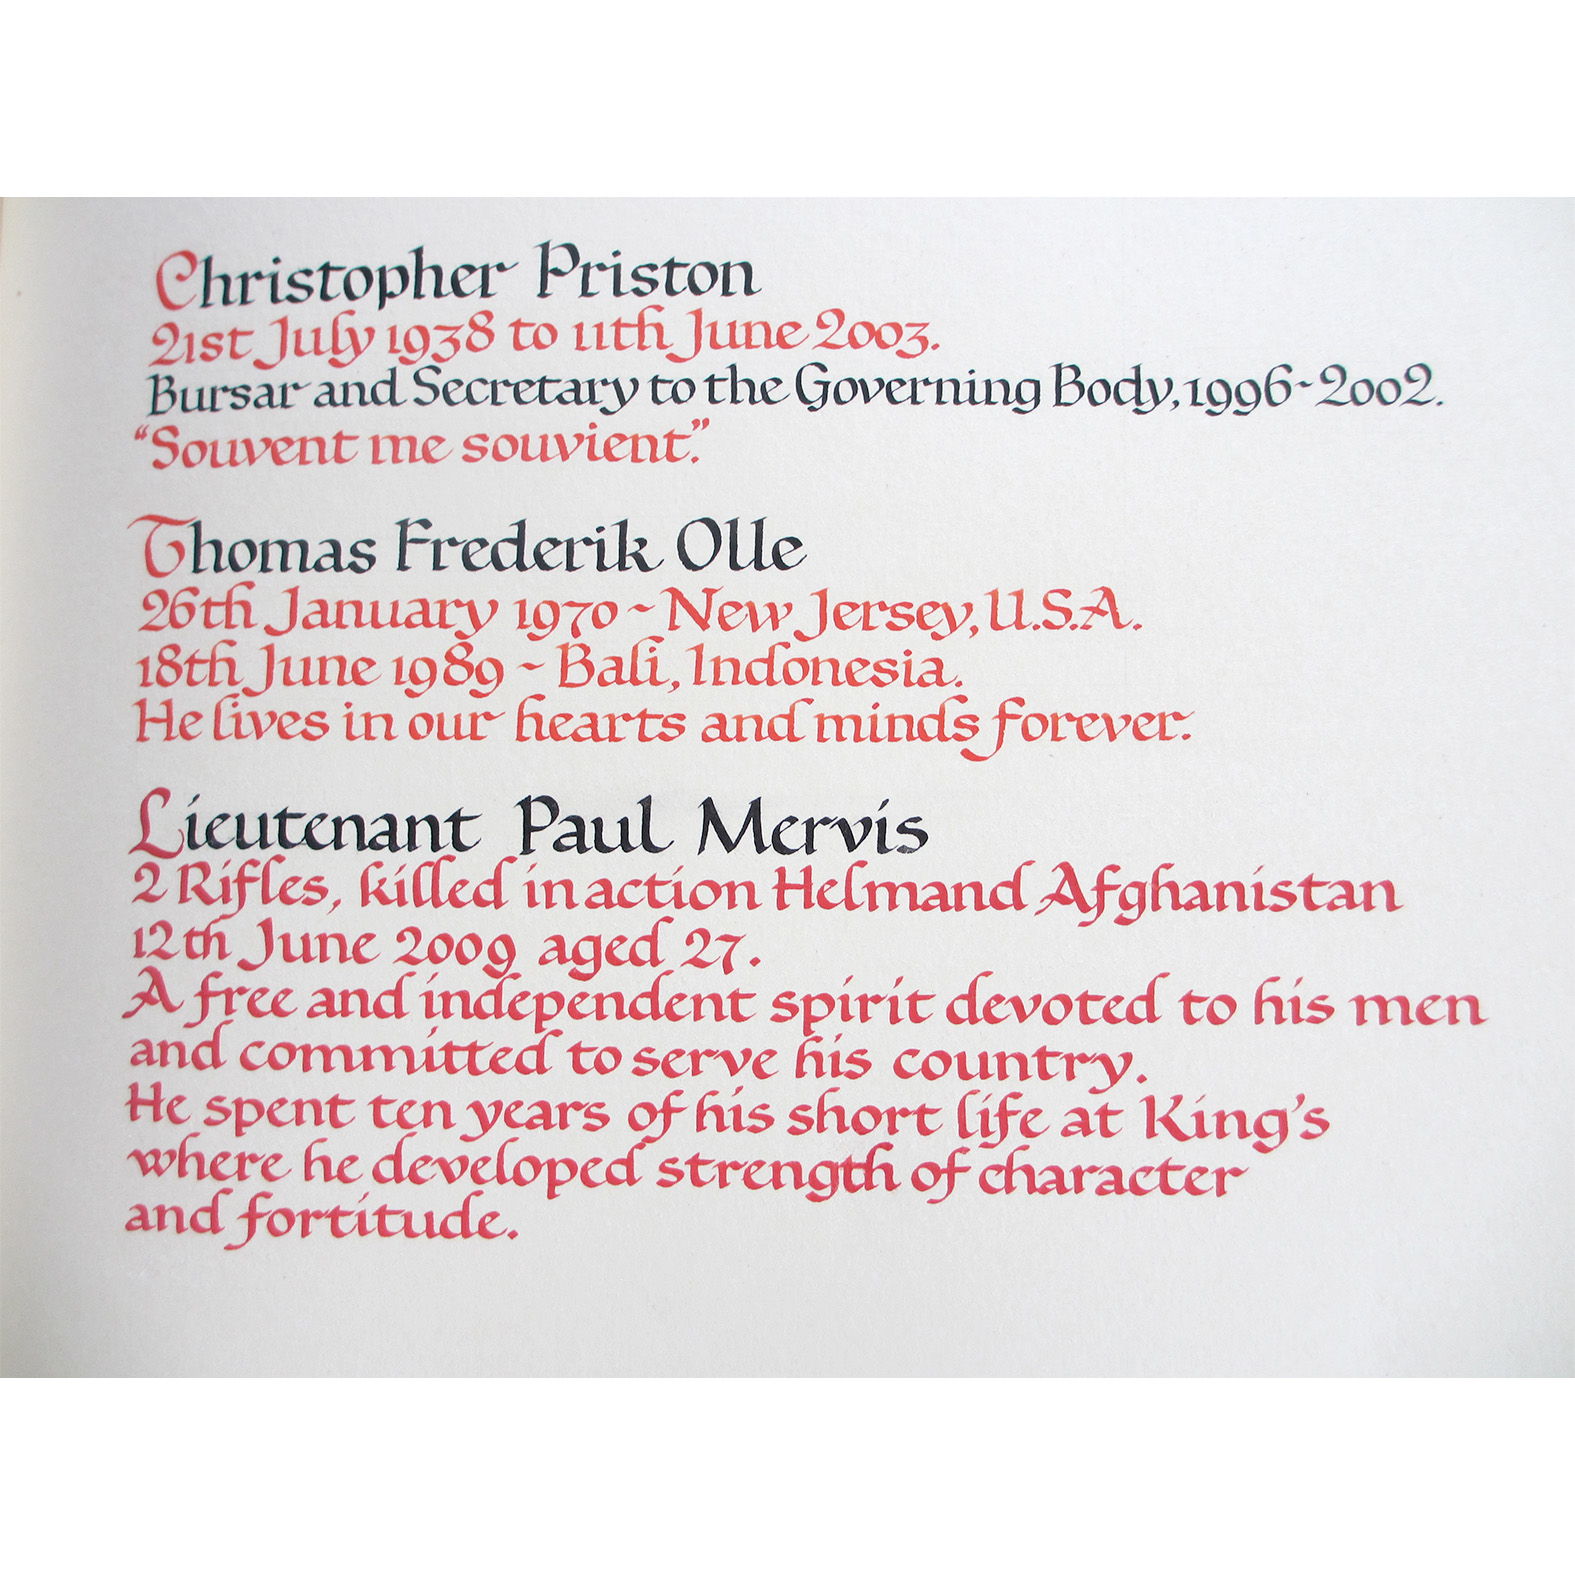 Christopher Priston
21st July 1938 to 11th June 2003.
Bursar and Secretary to the Governing Body, 1996-2002.
"Souvent me souvient."
Thomas Frederik Olle
26th January 1970 - New Jersey, U.S.A.
18th June 1989 - Bali, Indonesia.
He lives in our hearts and minds forever.
Lieutenant Paul Mervis
2 Rifles, killed in action Helmand Afghanistan
12th June 2009 aged 27.
A free and independent spirit devoted to his men
and committed to serve his country.
He spent ten years of his short life at King's
where he developed strength of character
and fortitude.